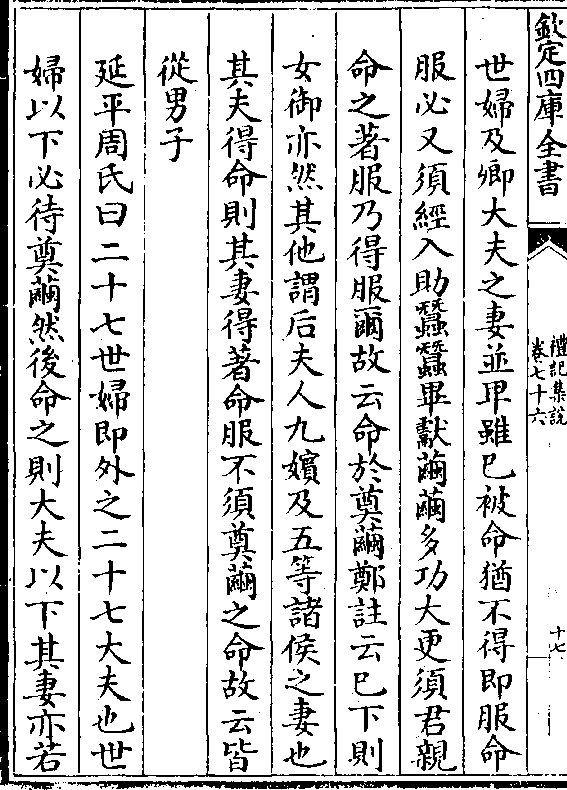 欽定四庫全書
禮記集說
卷七十六
十七
世婦及卿大夫之妻並卑雖已被命猶不得即服命
服必又須經入助蠶蠶畢獻繭繭多功大更須君親
命之著服乃得服爾故云命於奠繭鄭註云已下則
女御亦然其他謂后夫人九嬪及五等諸侯之妻也
其夫得命則其妻得著命服不須奠繭之命故云皆
從男子
延平周氏曰二十七世婦即外之二十七大夫也世
婦以下必待奠繭然後命之則大夫以下其妻亦若